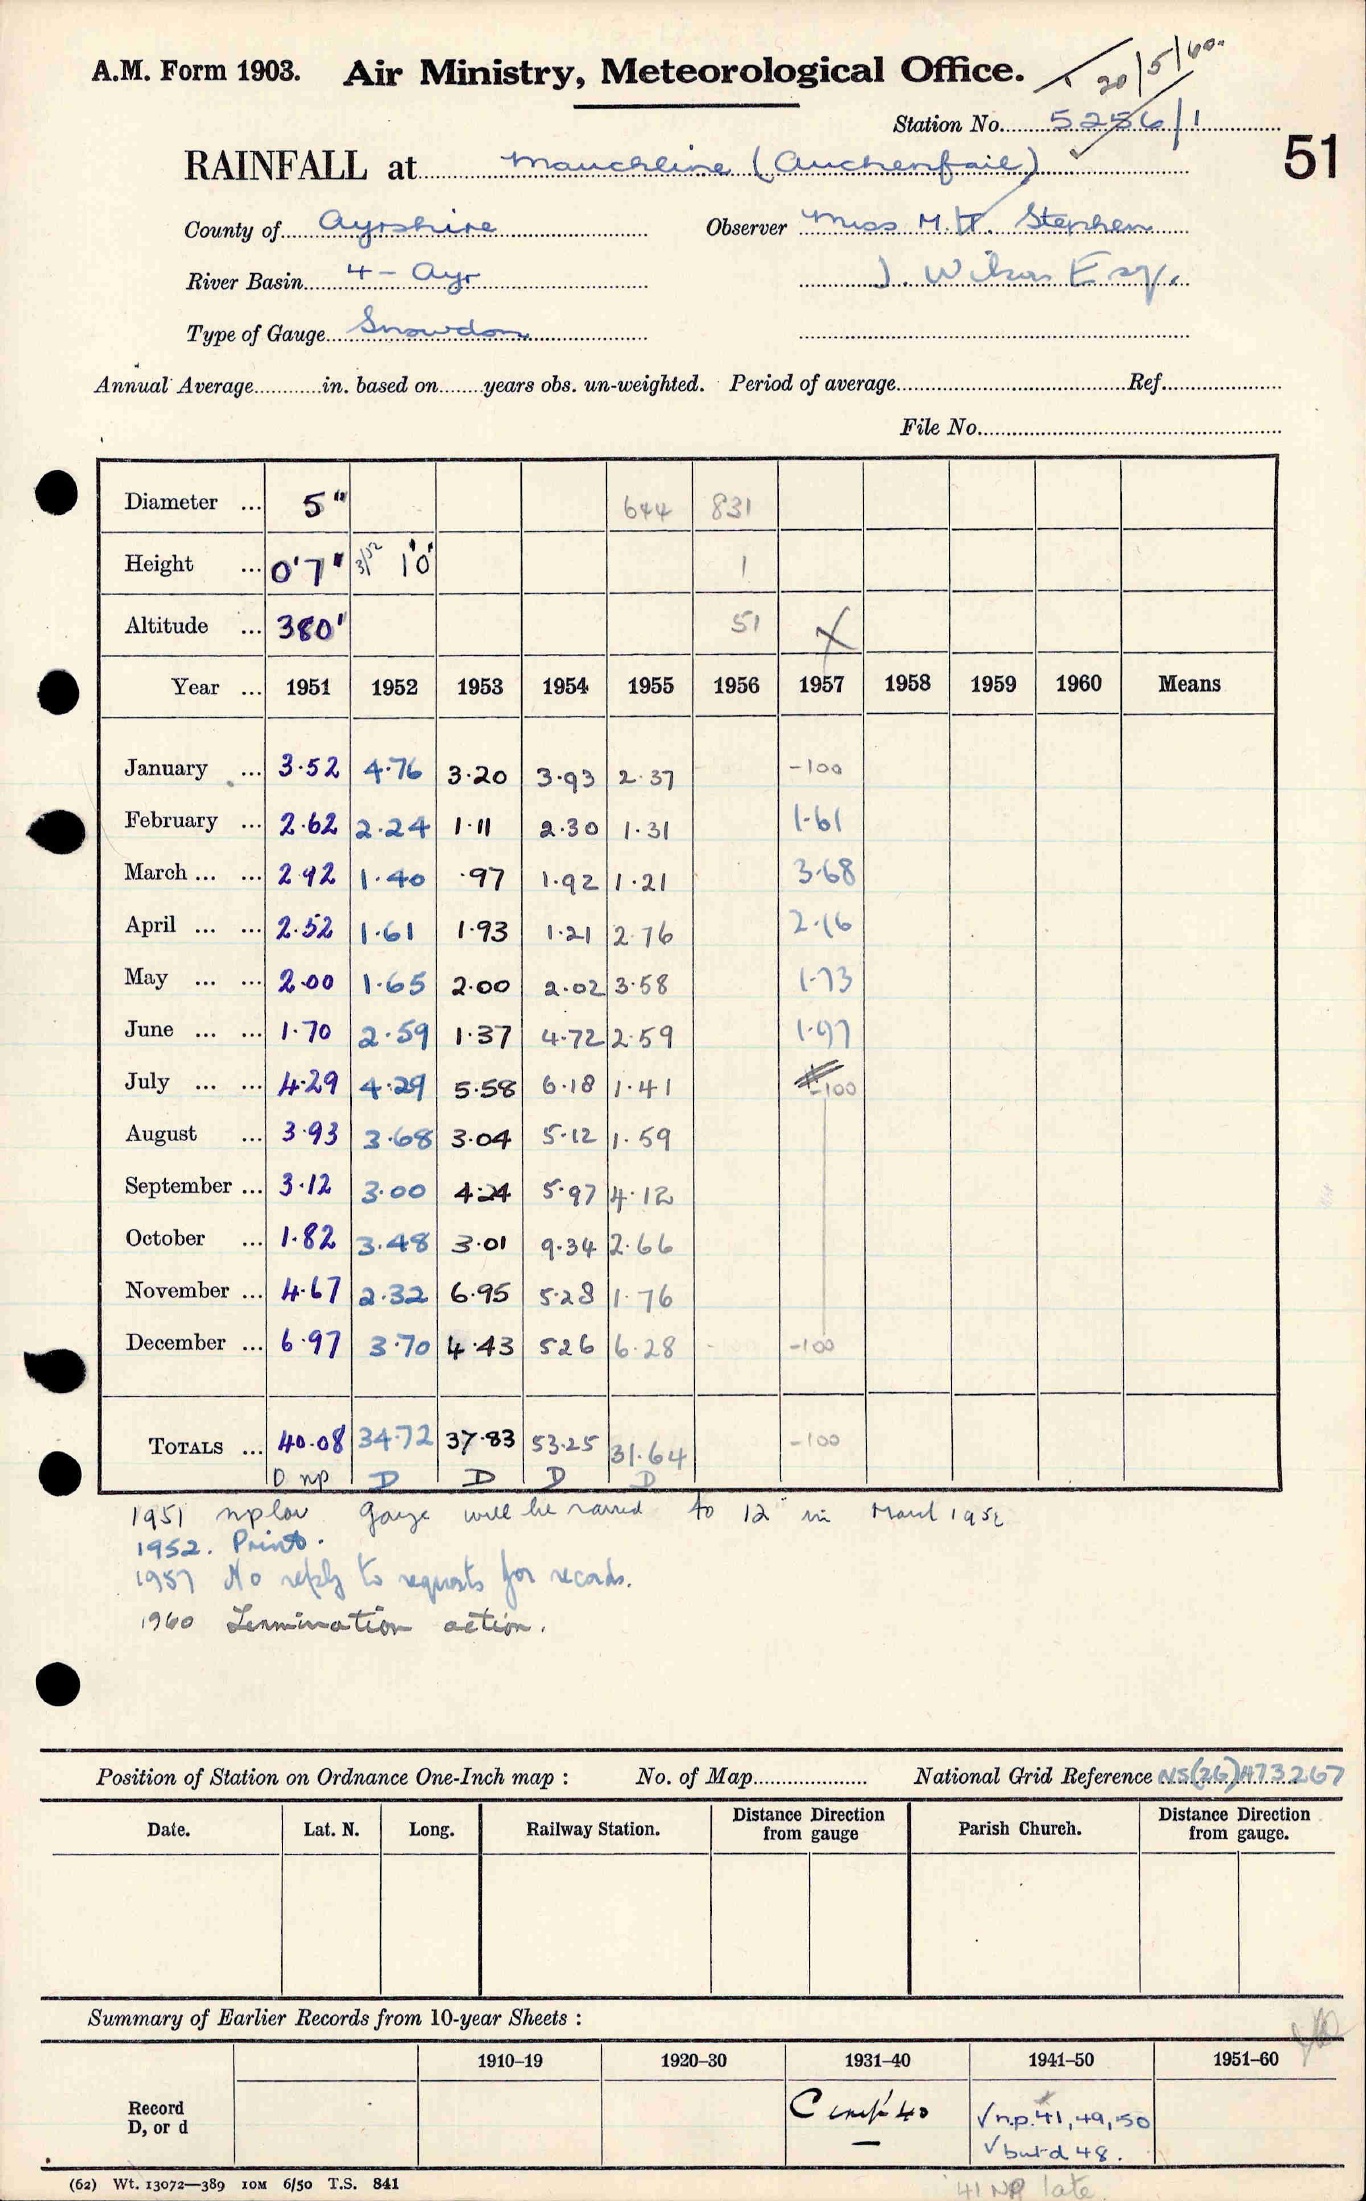 A.M. Form 1903. Air Ministry, Meteorological Office. 20/5/60.
Station No. 5256/1
51
RAINFALL at Mauchline (Auchenfail)
County of Ayrshire Observer Miss M.H. Stephen
River Basin 4 - Ayr J. Wilson Esq.
Type of Gauge Snowdon
Annual Average in. based on years obs. un-weighted. Period of average Ref.
File No.
Diameter ... 5" 644 831
Height ... 0'7" 3/52 1'0" 1
Altitude ... 380' 51 X
Year ... 1951 1952 1953 1954 1955 1956 1957 1958 1959 1960 Means
January ... 3.52 4.76 3.20 3.93 2.37 -100
February ... 2.62 2.24 1.11 2.30 1.31 1.61
March ... ... 2.92 1.40 .97 1.92 1.21 3.68
April ... ... 2.52 1.61 1.93 1.21 2.76 2.16
May ... ... 2.00 1.65 2.00 2.02 3.58 1.73
June ... ... 1.70 2.59 1.37 4.72 2.59 1.97
July ... ... 4.29 4.29 5.58 6.18 1.41 -100
August ... 3.93 3.68 3.04 5.12 1.59
September ... 3.12 3.00 4.24 5.97 4.12
October ... 1.82 3.48 3.01 9.34 2.66
November ... 4.67 2.32 6.95 5.28 1.76
December ... 6.97 3.70 4.43 5.26 6.28 -100
TOTALS ... 40.08 34.72 37.83 53.25 31.64 -100
D np D D D D
1951 np low Gauge will be raised to 12" in March 1952
1952. Print.
1957 No reply to requests for records.
1960 Termination action.
Position of Station on Ordnance One-Inch map : No. of Map National Grid Reference NS(26)473267
Date. Lat. N. Long. Railway Station. Distance Direction from gauge Parish Church. Distance Direction from gauge.
Summary of Earlier Records from 10-year Sheets :
1910-19 1920-30 1931-40 1941-50 1951-60
Record D, or d C 40 √ n.p. 41, 49, 50
√ but d 48.
(62) Wt. 13072—389 10M 6/50 T.S. 841
41 NP late